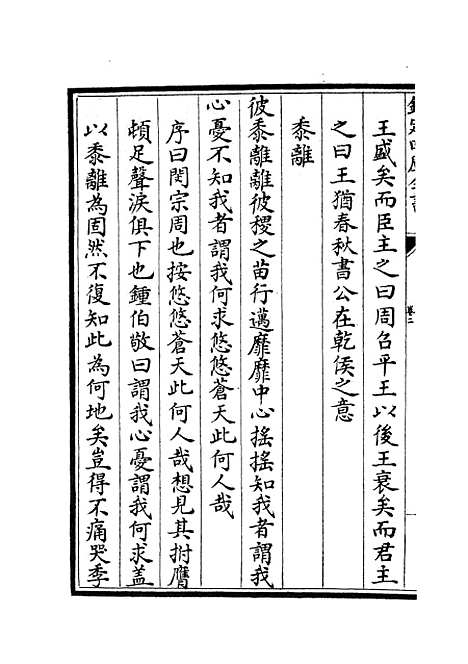 王盛矣而臣主之曰周召平王以後王衰矣而君主
之曰王猶春秋書公在乾侯之意
黍離
彼黍離離彼稷之苗行邁靡靡中心搖搖知我者謂我
心憂不知我者謂我何求悠悠蒼天此何人哉
序曰閔宗周也按悠悠蒼天此何人哉想見其拊膺
頓足聲淚俱下也鍾伯敬曰謂我心憂謂我何求葢
以黍離為固然不復知此為何地矣豈得不痛哭季